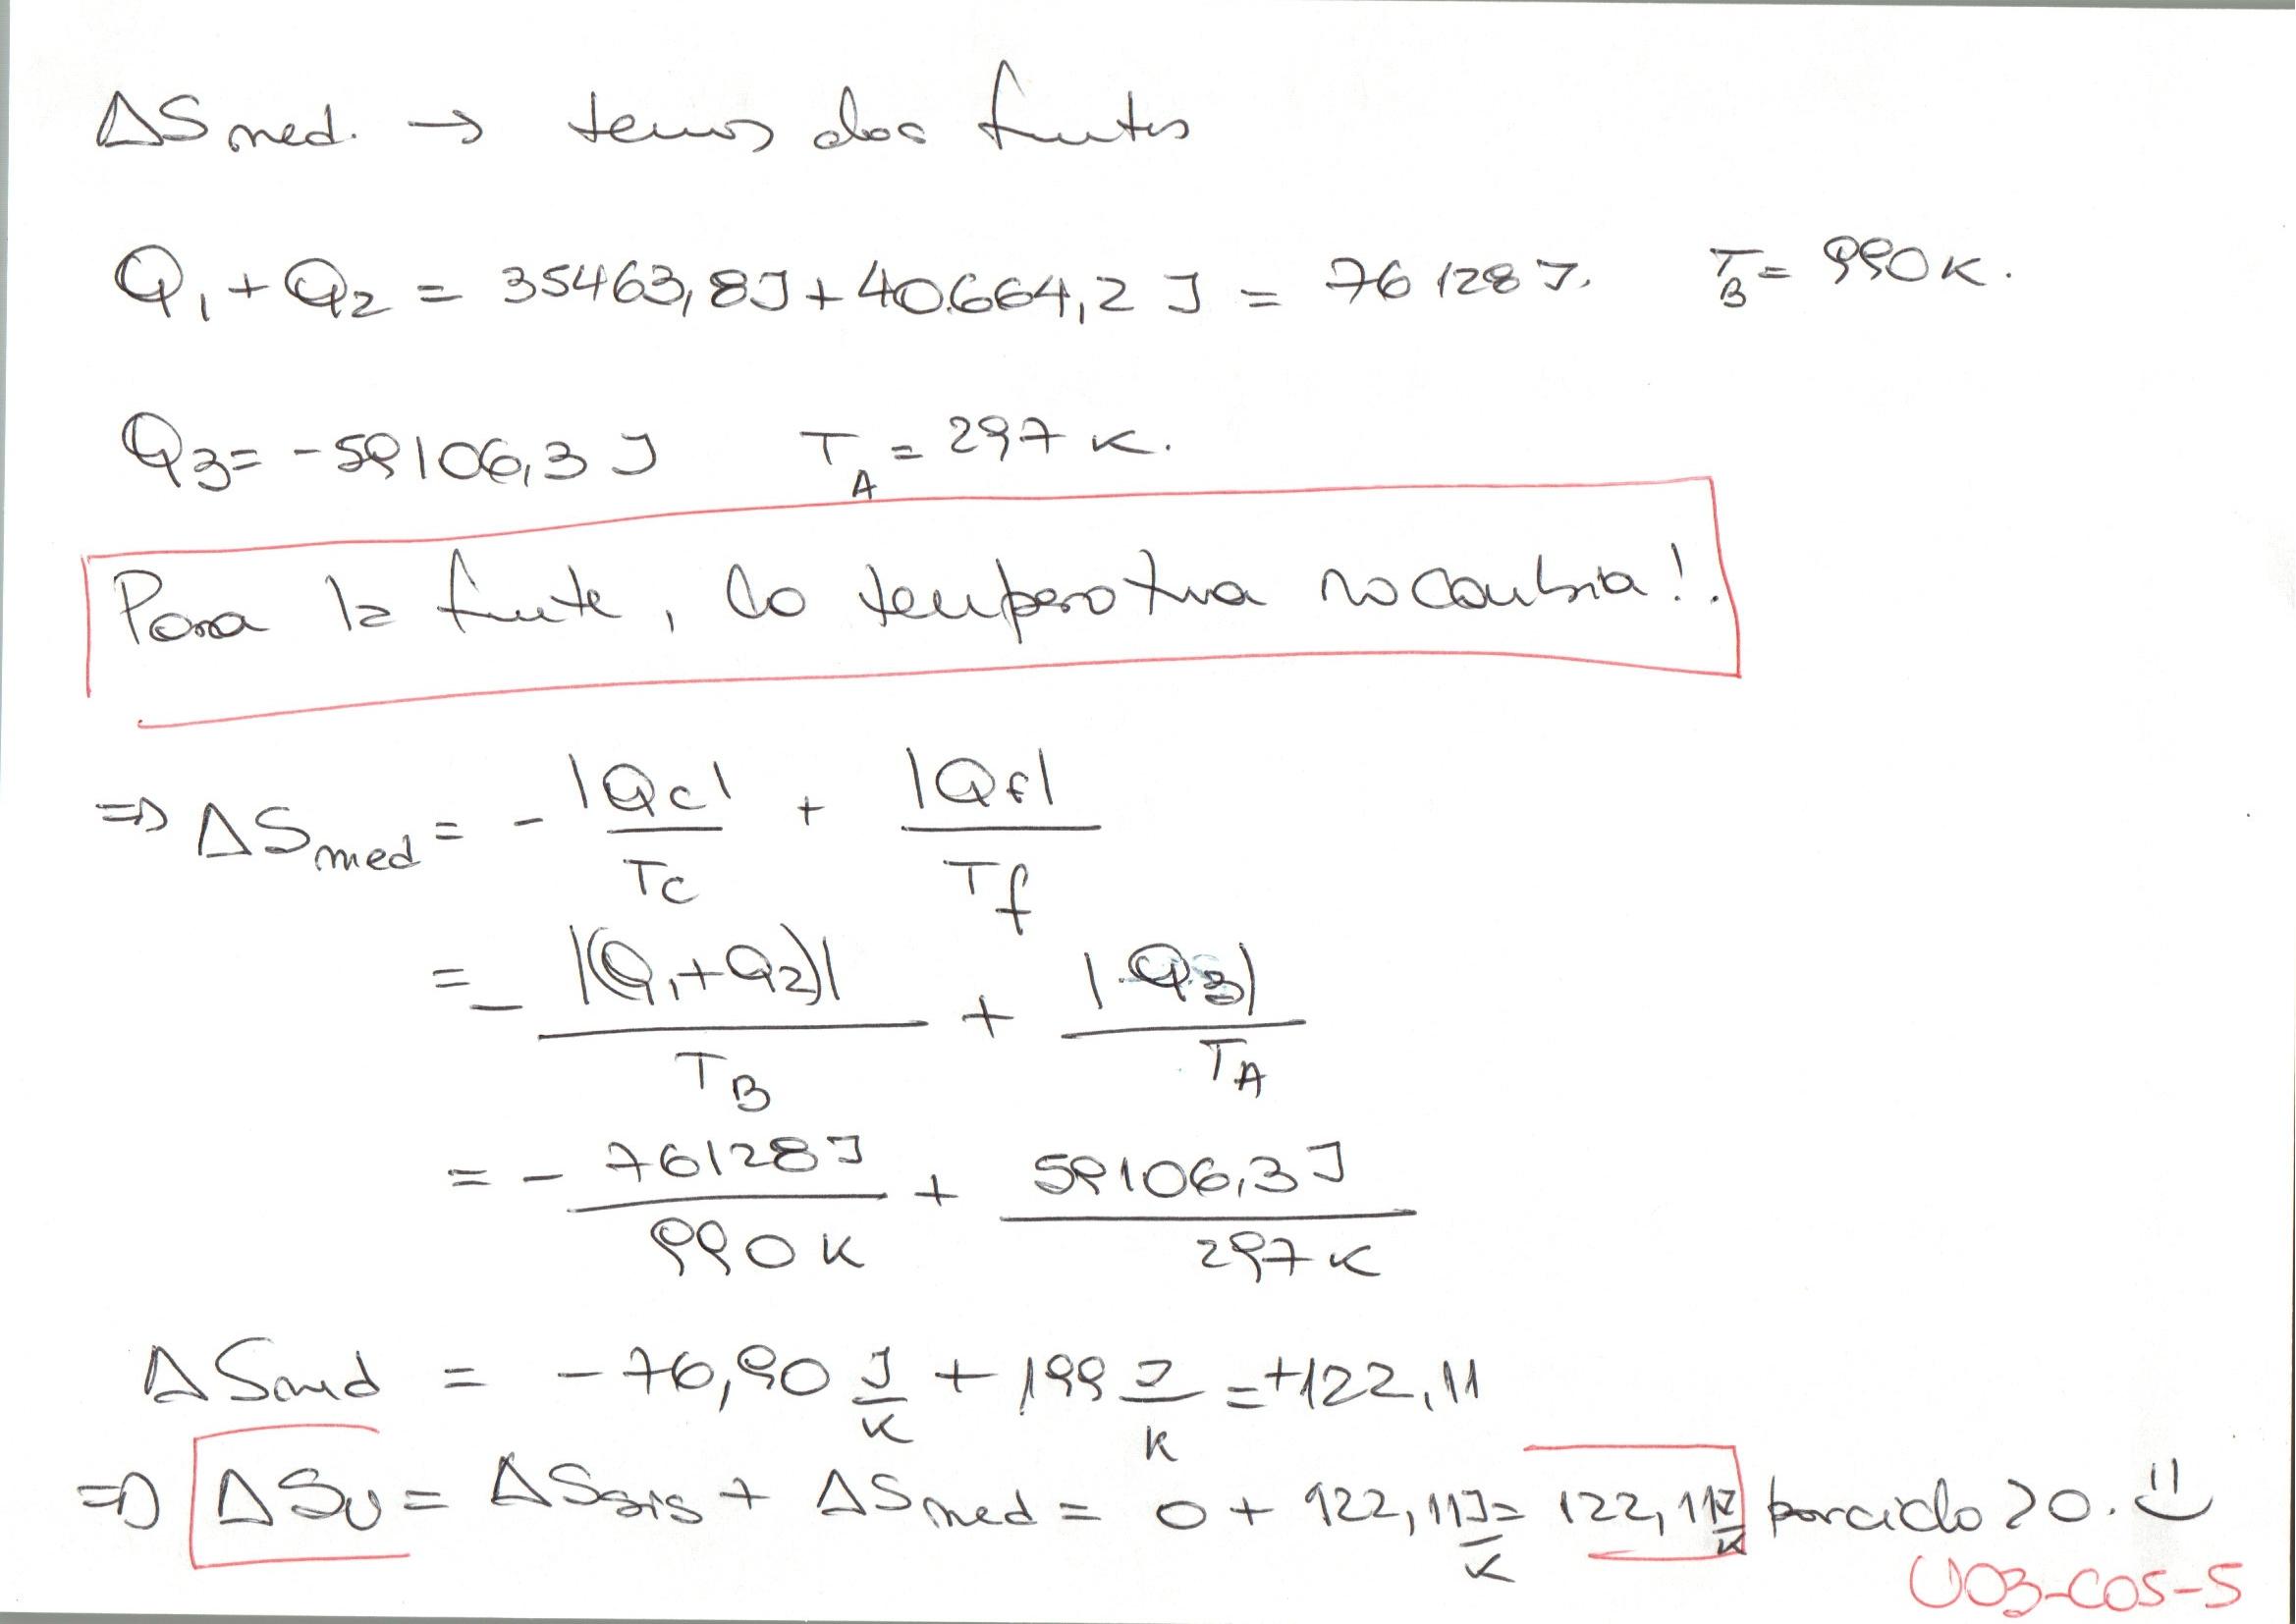 ΔS med. → tenemos dos fuentes
Q₁ + Q₂ = 35463,8J + 40.664,2 J = 76128 J. T_B = 990 K.
Q₃ = -59106,3 J T_A = 297 K.
Para la fuente, la temperatura no cambia!.
⇒ ΔS med = - |Qc| / Tc + |Qf| / Tf
= - |(Q₁+Q₂)| / T_B + |Q₃| / T_A
= - 76128 J / 990 K + 59106,3 J / 297 K
ΔS med = - 76,90 J/K + 199 J/K = +122,11
⇒ ΔSu = ΔS sis + ΔS med = 0 + 122,11 J/K = 122,11 J/K por ciclo > 0. :)
U03-C05-5